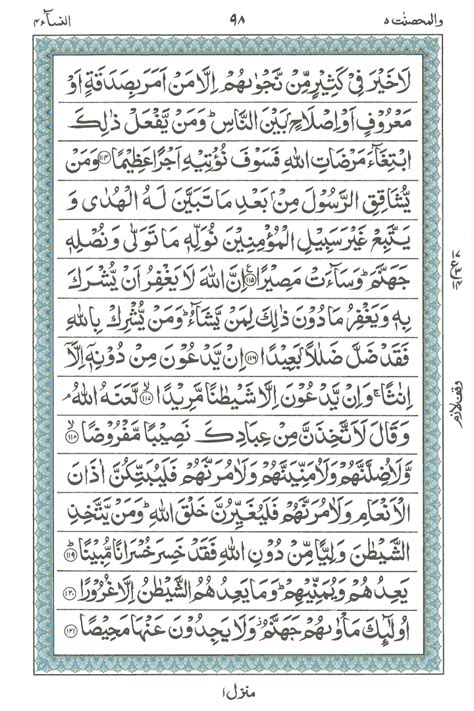 والمحصنت ٥
٩٨
النسآء ٤
لَا خَيْرَ فِيْ كَثِيْرٍ مِّنْ نَّجْوٰىهُمْ اِلَّا مَنْ اَمَرَ بِصَدَقَةٍ اَوْ
مَعْرُوْفٍ اَوْ اِصْلَاحٍۭ بَيْنَ النَّاسِ ؕ وَمَنْ يَّفْعَلْ ذٰلِكَ
ابْتِغَآءَ مَرْضَاتِ اللّٰهِ فَسَوْفَ نُؤْتِيْهِ اَجْرًا عَظِيْمًا ﴿۱۱۴﴾ وَمَنْ
يُّشَاقِقِ الرَّسُوْلَ مِنْۢ بَعْدِ مَا تَبَيَّنَ لَهُ الْهُدٰى وَ
يَتَّبِعْ غَيْرَ سَبِيْلِ الْمُؤْمِنِيْنَ نُوَلِّهٖ مَا تَوَلّٰى وَنُصْلِهٖ
جَهَنَّمَ ؕ وَسَآءَتْ مَصِيْرًا ﴿۱۱۵﴾ اِنَّ اللّٰهَ لَا يَغْفِرُ اَنْ يُّشْرَكَ
بِهٖ وَيَغْفِرُ مَا دُوْنَ ذٰلِكَ لِمَنْ يَّشَآءُ ؕ وَمَنْ يُّشْرِكْ بِاللّٰهِ
فَقَدْ ضَلَّ ضَلٰلًاۢ بَعِيْدًا ﴿۱۱۶﴾ اِنْ يَّدْعُوْنَ مِنْ دُوْنِهٖۤ اِلَّاۤ
اِنٰثًا ۚ وَاِنْ يَّدْعُوْنَ اِلَّا شَيْطٰنًا مَّرِيْدًا ﴿۱۱۷﴾ لَّعَنَهُ اللّٰهُ ۘ
وَقَالَ لَاَتَّخِذَنَّ مِنْ عِبَادِكَ نَصِيْبًا مَّفْرُوْضًا ﴿۱۱۸﴾
وَّلَاُضِلَّنَّهُمْ وَلَاُمَنِّيَنَّهُمْ وَلَاٰمُرَنَّهُمْ فَلَيُبَتِّكُنَّ اٰذَانَ
الْاَنْعَامِ وَلَاٰمُرَنَّهُمْ فَلَيُغَيِّرُنَّ خَلْقَ اللّٰهِ ؕ وَمَنْ يَّتَّخِذِ
الشَّيْطٰنَ وَلِيًّا مِّنْ دُوْنِ اللّٰهِ فَقَدْ خَسِرَ خُسْرَانًا مُّبِيْنًا ﴿۱۱۹﴾
يَعِدُهُمْ وَيُمَنِّيْهِمْ ؕ وَمَا يَعِدُهُمُ الشَّيْطٰنُ اِلَّا غُرُوْرًا ﴿۱۲۰﴾
اُولٰٓئِكَ مَاْوٰىهُمْ جَهَنَّمُ ؗ وَلَا يَجِدُوْنَ عَنْهَا مَحِيْصًا ﴿۱۲۱﴾
وقف لازم
منزل ١